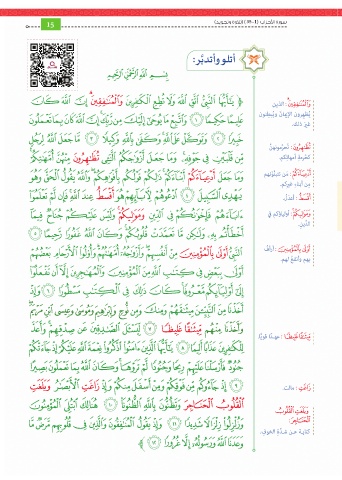 سورة الأحزاب (1-18) (تلاوة وتجويد)
15
أتلو وأتدبّر:
بِسْمِ اللَّهِ الرَّحْمَٰنِ الرَّحِيمِ
﴿ يَا أَيُّهَا النَّبِيُّ اتَّقِ اللَّهَ وَلَا تُطِعِ الْكَافِرِينَ وَالْمُنَافِقِينَ إِنَّ اللَّهَ كَانَ
عَلِيمًا حَكِيمًا ١ وَاتَّبِعْ مَا يُوحَىٰ إِلَيْكَ مِن رَّبِّكَ إِنَّ اللَّهَ كَانَ بِمَا تَعْمَلُونَ
خَبِيرًا ٢ وَتَوَكَّلْ عَلَى اللَّهِ وَكَفَىٰ بِاللَّهِ وَكِيلًا ٣ مَّا جَعَلَ اللَّهُ لِرَجُلٍ
مِّن قَلْبَيْنِ فِي جَوْفِهِ وَمَا جَعَلَ أَزْوَاجَكُمُ اللَّائِي تُظَاهِرُونَ مِنْهُنَّ أُمَّهَاتِكُمْ
وَمَا جَعَلَ أَدْعِيَاءَكُمْ أَبْنَاءَكُمْ ذَٰلِكُمْ قَوْلُكُم بِأَفْوَاهِكُمْ وَاللَّهُ يَقُولُ الْحَقَّ وَهُوَ
يَهْدِي السَّبِيلَ ٤ ادْعُوهُمْ لِآبَائِهِمْ هُوَ أَقْسَطُ عِندَ اللَّهِ فَإِن لَّمْ تَعْلَمُوا
آبَاءَهُمْ فَإِخْوَانُكُمْ فِي الدِّينِ وَمَوَالِيكُمْ وَلَيْسَ عَلَيْكُمْ جُنَاحٌ فِيمَا
أَخْطَأْتُم بِهِ وَلَٰكِن مَّا تَعَمَّدَتْ قُلُوبُكُمْ وَكَانَ اللَّهُ غَفُورًا رَّحِيمًا ٥
النَّبِيُّ أَوْلَىٰ بِالْمُؤْمِنِينَ مِنْ أَنفُسِهِمْ وَأَزْوَاجُهُ أُمَّهَاتُهُمْ وَأُولُو الْأَرْحَامِ بَعْضُهُمْ
أَوْلَىٰ بِبَعْضٍ فِي كِتَابِ اللَّهِ مِنَ الْمُؤْمِنِينَ وَالْمُهَاجِرِينَ إِلَّا أَن تَفْعَلُوا
إِلَىٰ أَوْلِيَائِكُم مَّعْرُوفًا كَانَ ذَٰلِكَ فِي الْكِتَابِ مَسْطُورًا ٦ وَإِذْ
أَخَذْنَا مِنَ النَّبِيِّينَ مِيثَاقَهُمْ وَمِنكَ وَمِن نُّوحٍ وَإِبْرَاهِيمَ وَمُوسَىٰ وَعِيسَى ابْنِ مَرْيَمَ
وَأَخَذْنَا مِنْهُم مِّيثَاقًا غَلِيظًا ٧ لِّيَسْأَلَ الصَّادِقِينَ عَن صِدْقِهِمْ وَأَعَدَّ
لِلْكَافِرِينَ عَذَابًا أَلِيمًا ٨ يَا أَيُّهَا الَّذِينَ آمَنُوا اذْكُرُوا نِعْمَةَ اللَّهِ عَلَيْكُمْ إِذْ جَاءَتْكُمْ
جُنُودٌ فَأَرْسَلْنَا عَلَيْهِمْ رِيحًا وَجُنُودًا لَّمْ تَرَوْهَا وَكَانَ اللَّهُ بِمَا تَعْمَلُونَ بَصِيرًا
٩ إِذْ جَاءُوكُم مِّن فَوْقِكُمْ وَمِنْ أَسْفَلَ مِنكُمْ وَإِذْ زَاغَتِ الْأَبْصَارُ وَبَلَغَتِ
الْقُلُوبُ الْحَنَاجِرَ وَتَظُنُّونَ بِاللَّهِ الظُّنُونَا ١٠ هُنَالِكَ ابْتُلِيَ الْمُؤْمِنُونَ
وَزُلْزِلُوا زِلْزَالًا شَدِيدًا ١١ وَإِذْ يَقُولُ الْمُنَافِقُونَ وَالَّذِينَ فِي قُلُوبِهِم مَّرَضٌ مَّا
وَعَدَنَا اللَّهُ وَرَسُولُهُ إِلَّا غُرُورًا ١٢ ﴾
وَالْمُنَافِقِينَ: الذين
يُظهرون الإيمان ويُبطنون
غير ذلك.
تُظَاهِرُونَ: تُحرّمونهنّ
كحُرمة أمهاتكم.
أَدْعِيَاءَكُمْ: من تتبنّونهم
من أبناء غيركم.
أَقْسَطُ: أعدل.
وَمَوَالِيكُمْ: أولياؤكم في
الدين.
أَوْلَىٰ بِالْمُؤْمِنِينَ: أرأف
بهم وأنفع لهم.
مِّيثَاقًا غَلِيظًا: عهدًا قويًا.
زَاغَتِ: مالت.
وَبَلَغَتِ الْقُلُوبُ
الْحَنَاجِرَ:
كناية عن شدّة الخوف.